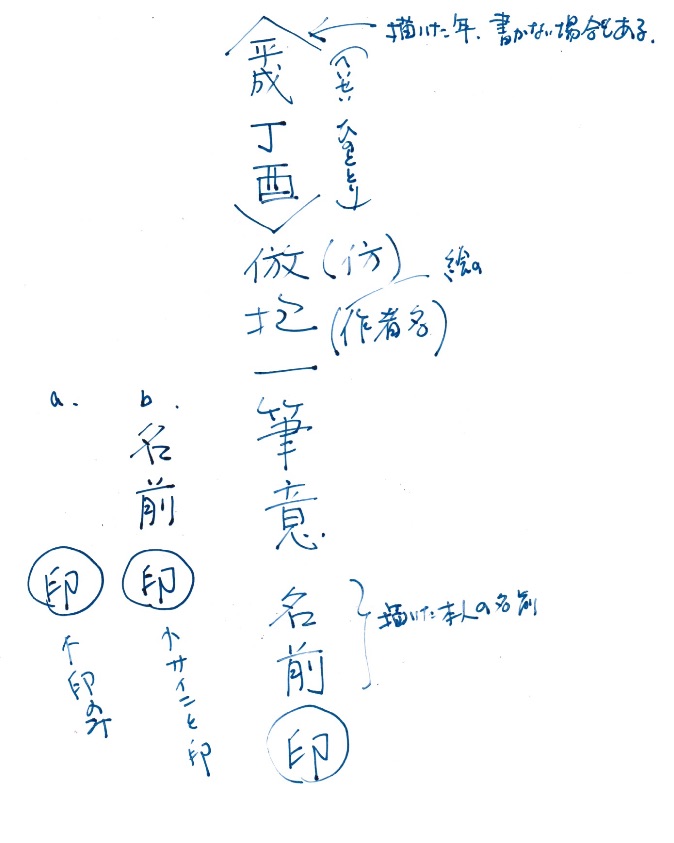 描いた年、書かない場合もある.
(へいせい ひのととり)
平成丁酉
倣(仿)
絵の
抱一(作者名)
筆意
名前
印
描いた本人の名前
b.
名前
印
サインと印
a.
印
印のみ